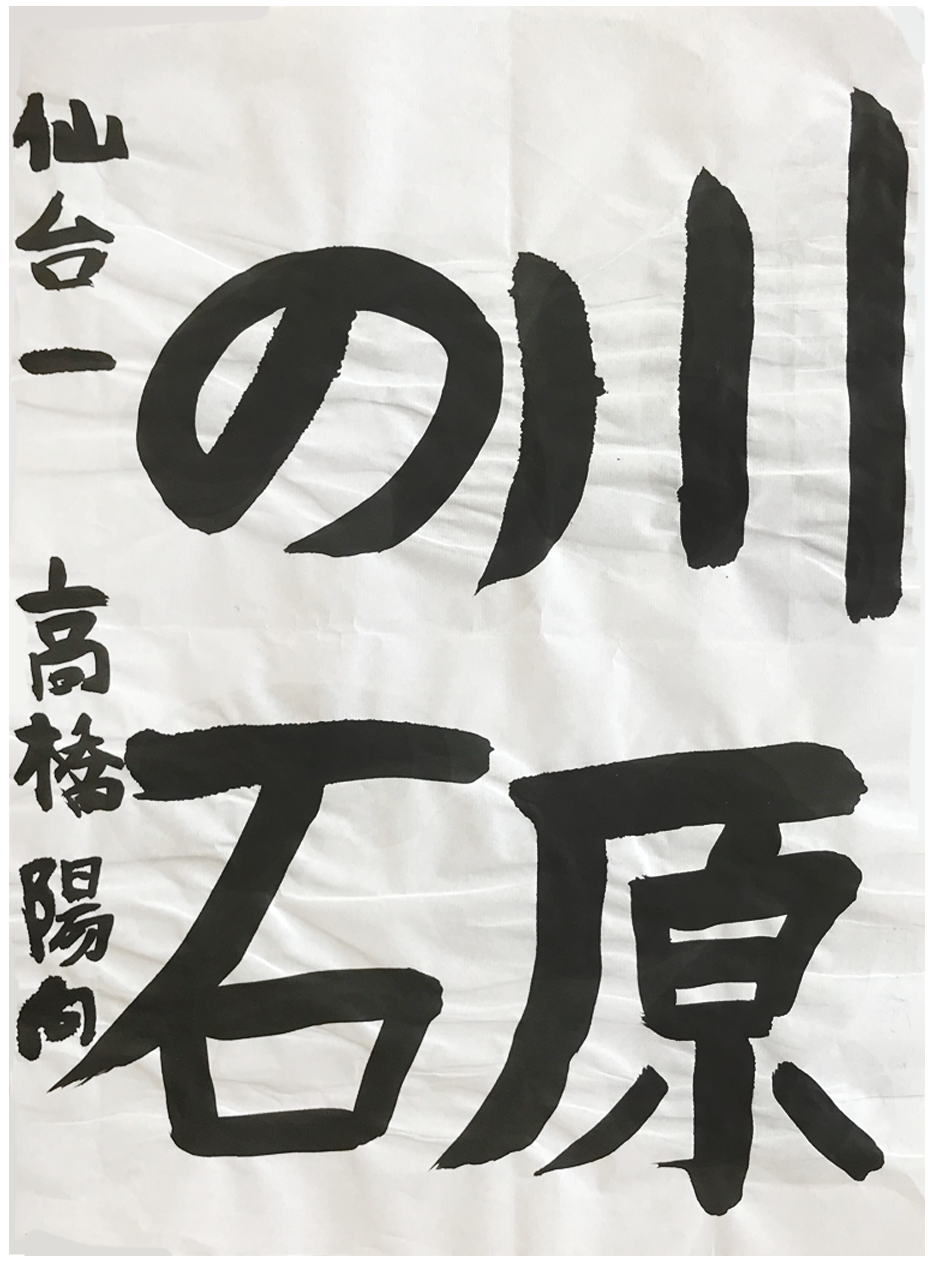 川原
の石
仙台一 高橋陽向